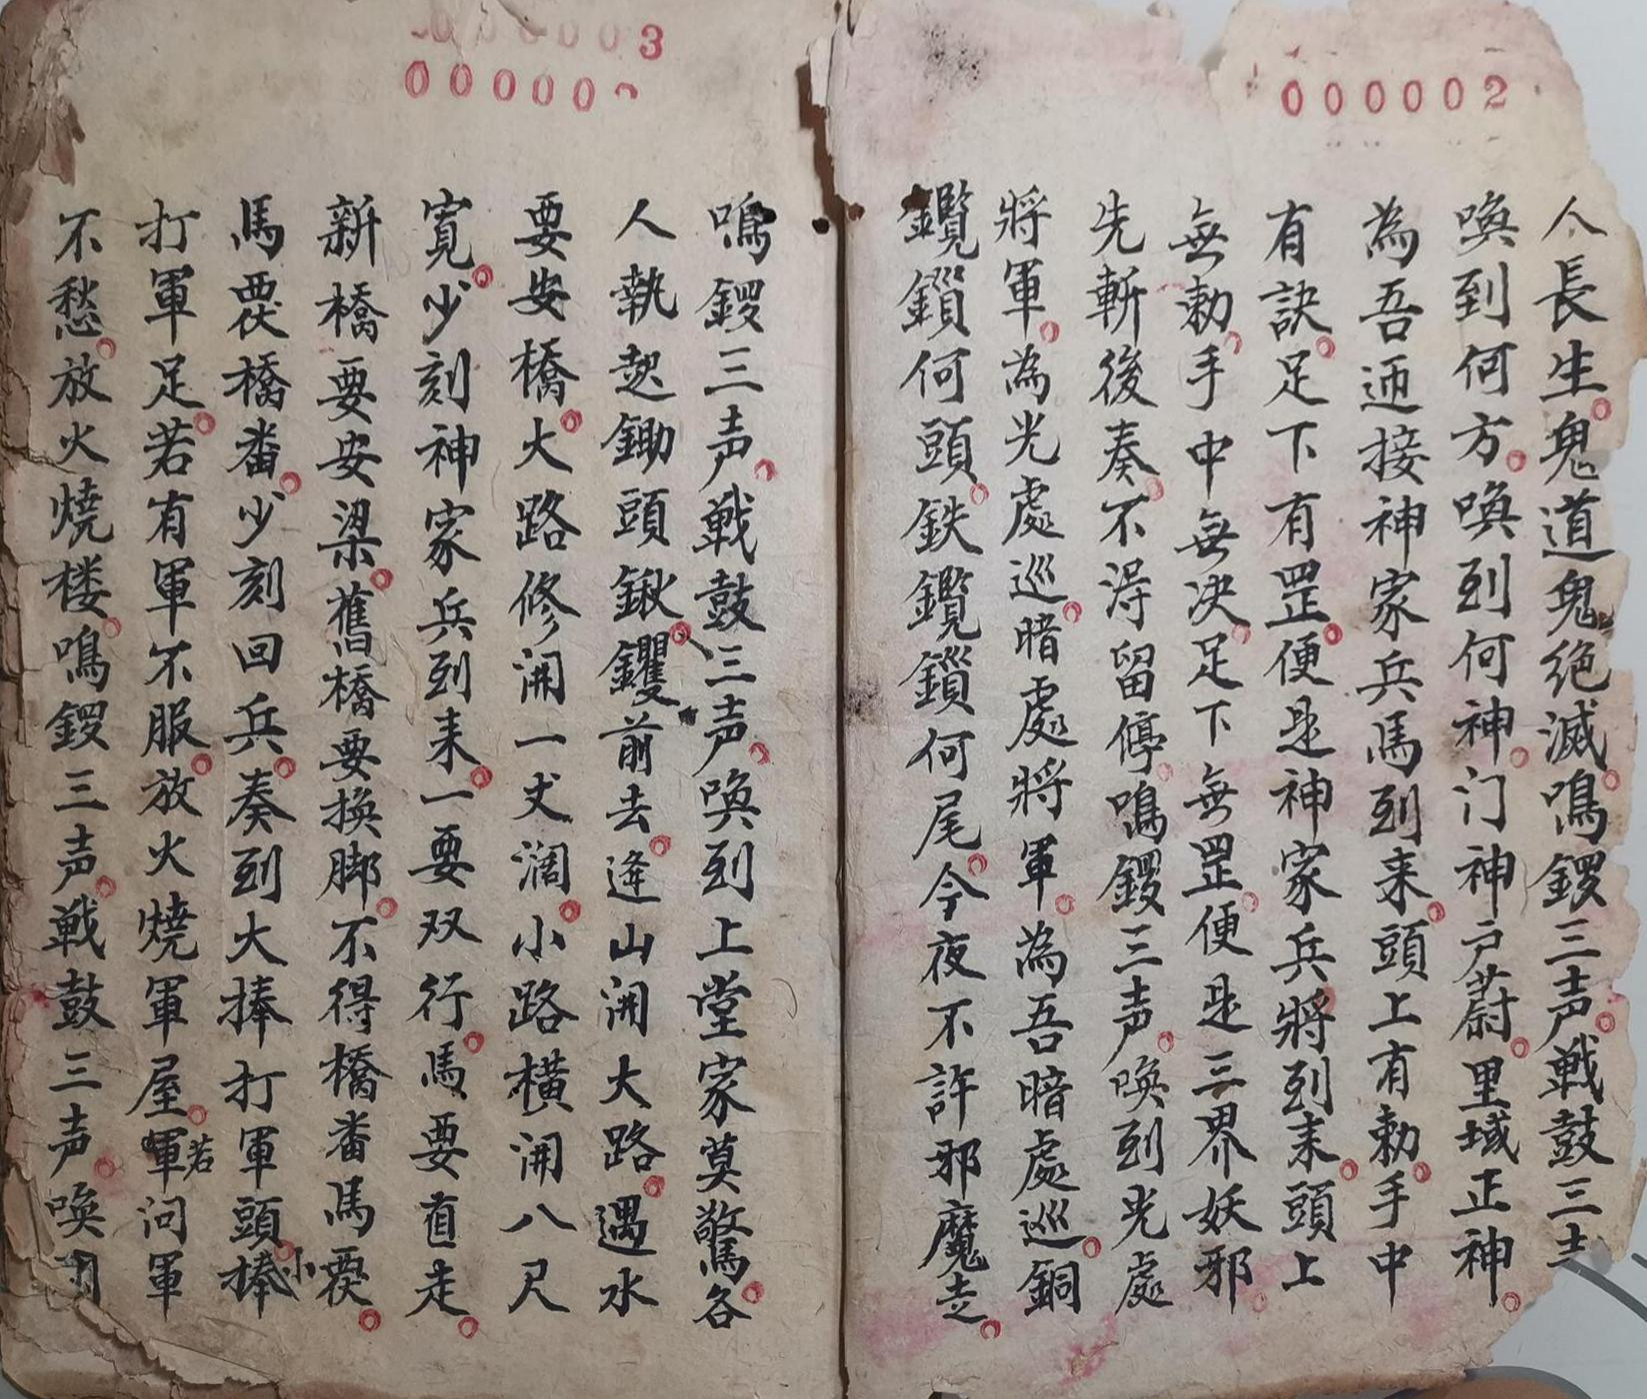 000002
人長生。鬼道鬼绝滅。鳴鑼三声。戦鼓三声
喚到何方。喚到何神。门神户蔚。里域正神。
為吾迊接神家兵馬到来。頭上有勅。手中
有訣。足下有罡。便是神家兵將到来。頭上
無勅。手中無决。足下無罡。便是三界妖邪。
先斬後奏。不淂留停。鳴鑼三声。喚到光處
將軍。為光處巡。暗處將軍。為吾暗處巡。銅
鑬鎻何頭。鉄鑬鎻何尾。今夜不許邪魔走。
000003
000002
鳴鑼三声。戦鼓三声。喚到上堂家莫驚。各
人執起鋤頭鍬。钁前去。逢山開大路。遇水
要安橋。大路修開一丈濶。小路横開八尺
寬。少刻神家兵到来。一要双行。馬要直走。
新橋要安梁。舊橋要換脚。不得橋畨馬要。
馬要橋畨。少刻回兵。奏到大捧打軍頭。小捧
打軍足。若有軍不服。放火燒軍屋。若軍问軍
不愁。放火燒楼。鳴鑼三声。戦鼓三声。喚